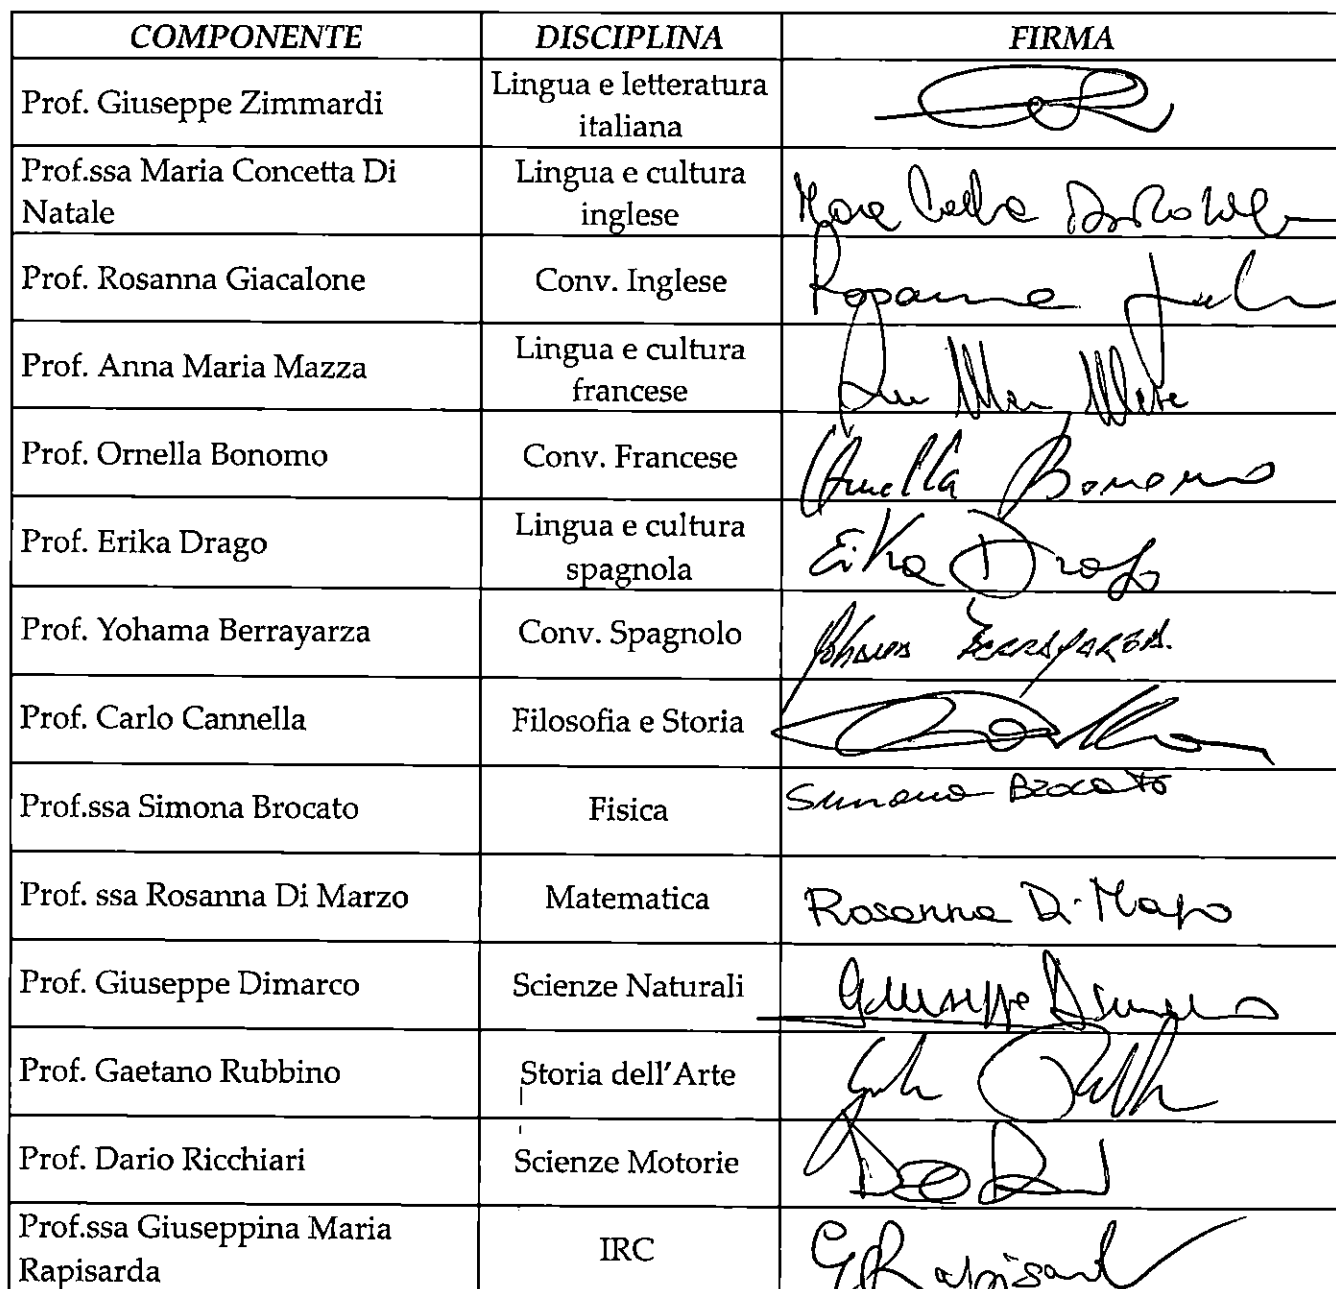 COMPONENTE DISCIPLINA FIRMA
Prof. Giuseppe Zimmardi Lingua e letteratura
italiana
Prof.ssa Maria Concetta Di Lingua e cultura
Natale inglese
Prof. Rosanna Giacalone Conv. Inglese Rosanna
Prof. Anna Maria Mazza Lingua e cultura
francese
Prof. Ornella Bonomo Conv. Francese Ornella Bonomo
Prof. Erika Drago Lingua e cultura Erika Drago
spagnola
Prof. Yohama Berrayarza Conv. Spagnolo Yohama Berrayarza.
Prof. Carlo Cannella Filosofia e Storia
Prof.ssa Simona Brocato Fisica Simona Brocato
Prof. ssa Rosanna Di Marzo Matematica Rosanna Di Marzo
Prof. Giuseppe Dimarco Scienze Naturali Giuseppe Dimarco
Prof. Gaetano Rubbino Storia dell'Arte
Prof. Dario Ricchiari Scienze Motorie
Prof.ssa Giuseppina Maria IRC G Rapisard
Rapisarda